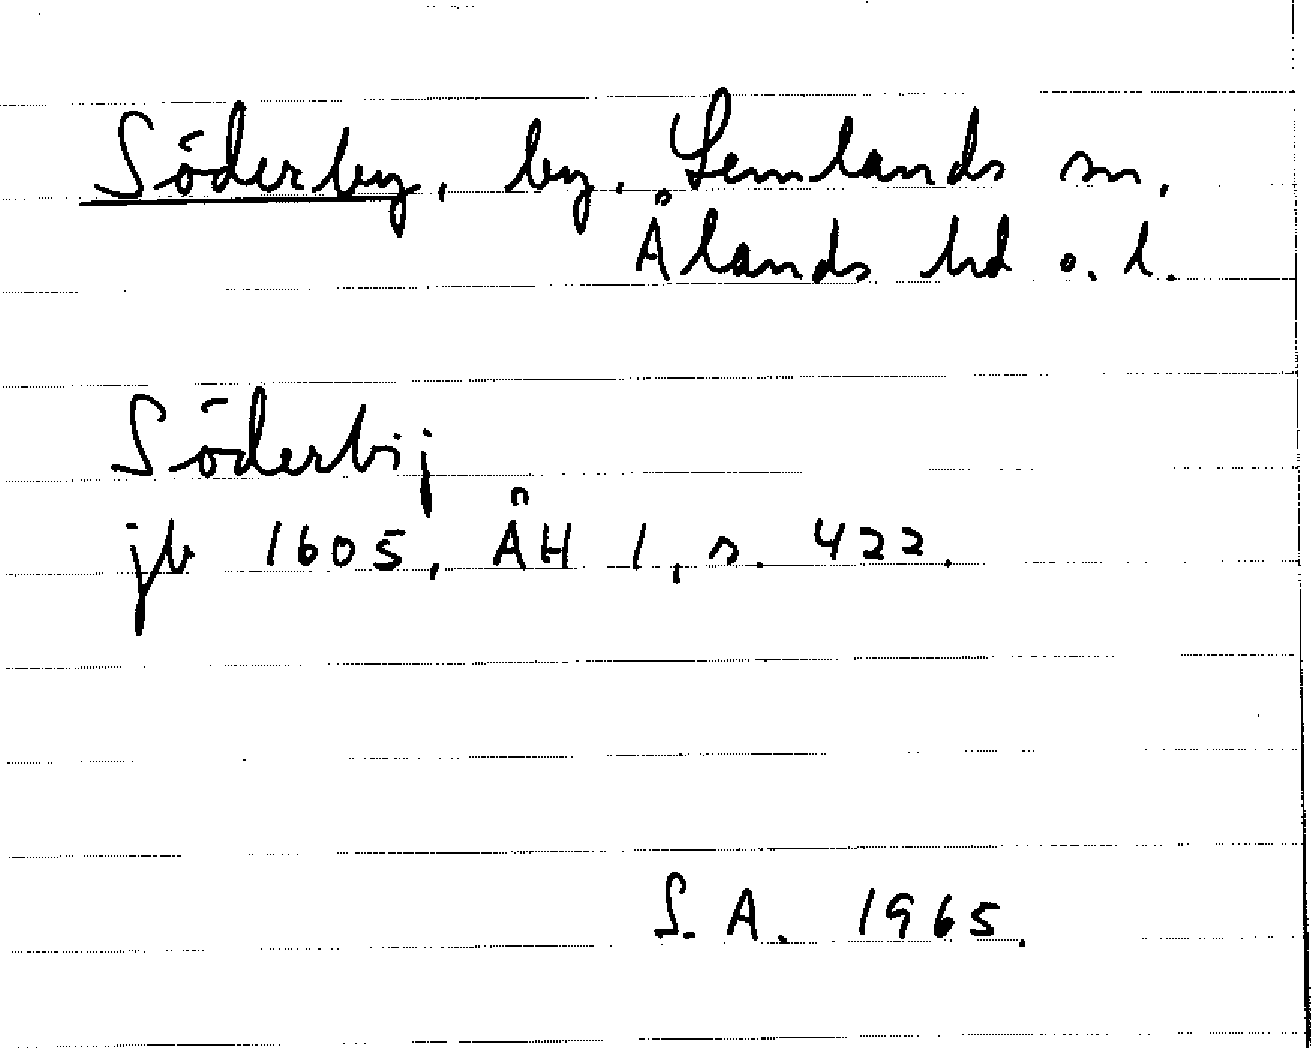 Söderby, by. Lemlands sn,
Ålands hd o. l.
Söderbij
jb 1605, ÅH 1, s. 422.
S. A. 1965.